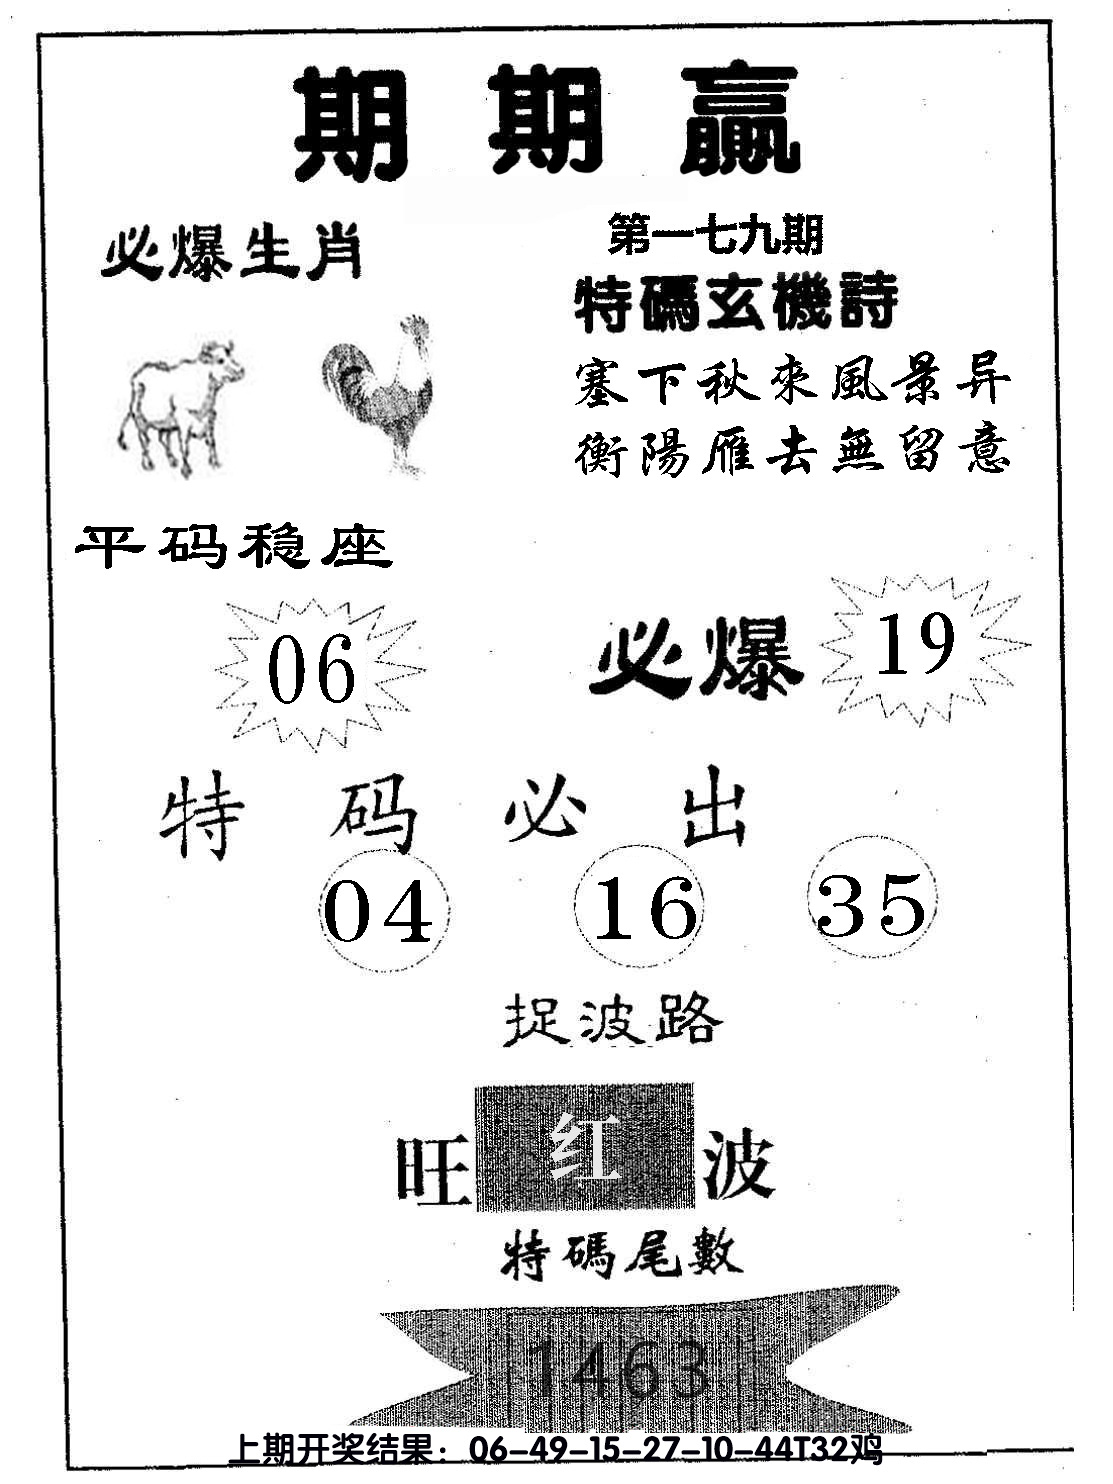 期期赢
必爆生肖
第一七九期
特碼玄機詩
塞下秋來風景异
衡陽雁去無留意
平码稳座
06
必爆
19
特码必出
04 16 35
捉波路
旺红波
特碼尾數
1463
上期开奖结果：06-49-15-27-10-44T32鸡